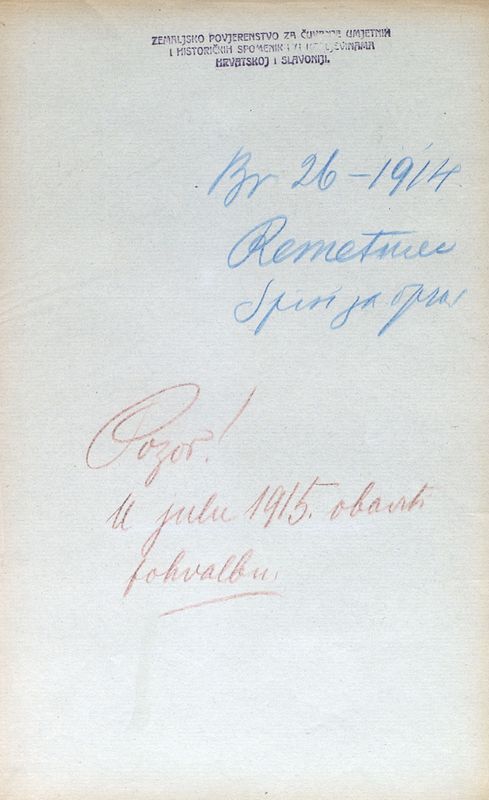 ZEMALJSKO POVJERENSTVO ZA ČUVANJE UMJETNIH
I HISTORIČKIH SPOMENIKA U KRALJEVINAMA
HRVATSKOJ I SLAVONIJI.
Br 26-1914
Remetinec
Spisi za
Pozor!
U julu 1915. obaviti
kolaudaciju